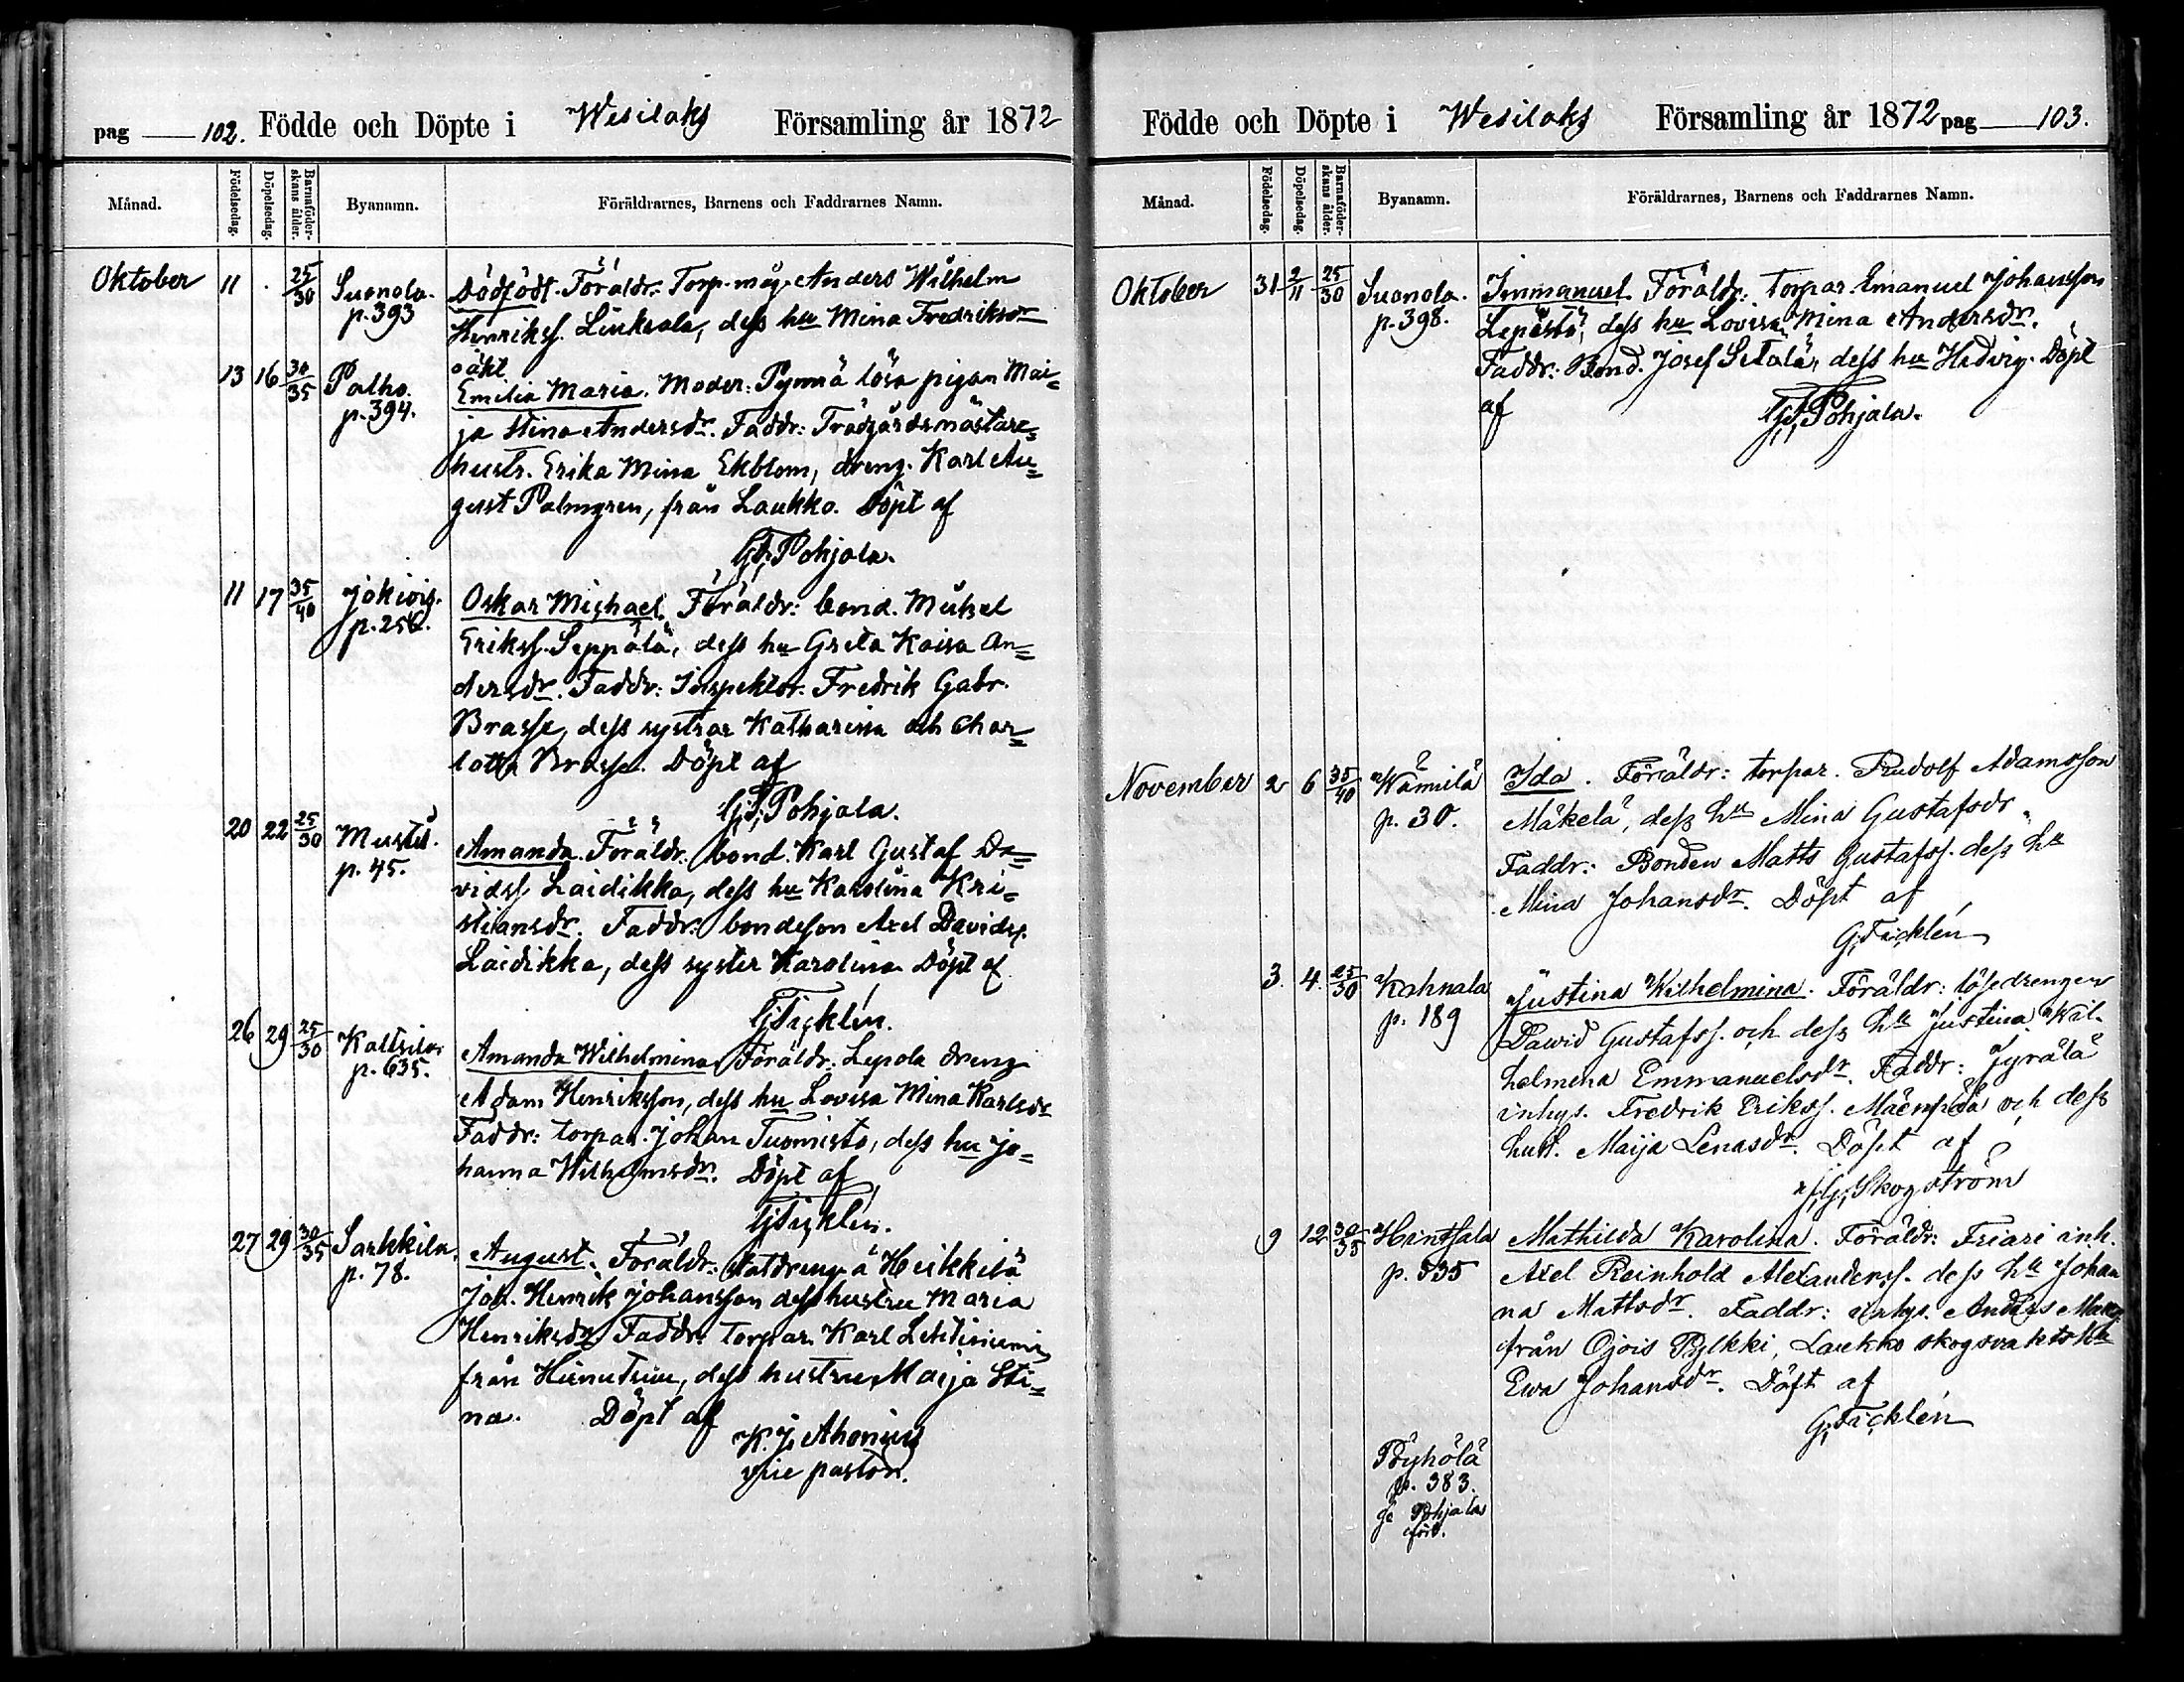 pag 102. Födde och Döpte i Wesilaks Församling år 1872
Månad. Födelsedag. Döpelsedag. Barnaföderskans ålder. Byanamn. Föräldrarnes, Barnens och Faddrarnes Namn.
Oktober 11 . 25/30 Suonola. p. 393
Dödfödt. Föräldr: Torp. måg Anders Wilhelm
Henrikss. Liuksala, dess hu Mina Fredriksdr
13 16 30/35 Palho. p. 394.
oäkt.
Emilia Maria. Moder: Pynnä lösa pigan Mai=
ja Stina Andersdr. Faddr: Trädgårdsmästare=
hustr. Erika Mina Ekblom, dreng. Karl Au=
gust Palmgren, från Laukko. Döpt af
G. F. Pohjala.
11 17 35/40 Jokiois. p. 256.
Oskar Michael. Föräldr: bond. Mikael
Erikss. Seppälä, dess hu Greta Kaisa An=
dersdr. Faddr: Inspektor. Fredrik Gabr.
Brasse, dess systrar Katharina och Char=
lotta Brasse. Döpt af
G. F. Pohjala.
20 22 25/30 Mustis. p. 45.
Amanda. Föräldr. bond. Karl Gustaf Da=
vidss. Laidikka, dess hu Karolina Kri=
stiansdr. Faddr: bondeson Axel Davidss.
Laidikka, dess syster Karolina. Döpt af
G. Ticklén.
26 29 25/30 Kaltsila p. 635.
Amanda Wilhelmina. Föräldr: Lepola dreng
Adam Henriksson, dess hu Lovisa Mina Karlsdr
Faddr: torpar. Johan Tuomisto, dess hu Jo=
hanna Wilhelmsdr. Döpt af
G. Ticklén.
27 29 30/35 Sarkkila. p. 78.
August. Föräldr: Statdreng å Heikkilä
Joh. Henrik Johansson dess hustru Maria
Henriksdr Faddr: torpar. Karl Lehtiniemi
från dess hustru Maija Sti=
na. Döpt af
K. J. Ahonius
vice pastor.
Födde och Döpte i Wesilaks Församling år 1872 pag 103.
Månad. Födelsedag. Döpelsedag. Barnaföderskans ålder. Byanamn. Föräldrarnes, Barnens och Faddrarnes Namn.
Oktober 31 2/11 25/30 Suonola. p. 398.
Immanuel. Föräldr: torpar. Emanuel Johansson
Lepistö, dess hu Lovisa Mina Andersdr.
Faddr: Bond. Josef Setälä, dess hu Hedvig. Döpt
af G. F. Pohjala.
November 2 6 35/40 Kämilä p. 30.
Ida. Föräldr: torpar. Rudolf Adamsson
Mäkelä, dess hu Mina Gustafsdr.
Faddr: Bonden Matts Gustafss. dess hu
Mina Johansdr. Döpt af
G. Ticklén
3. 4. 25/30 Kahnala p. 189
Justina Wilhelmina. Föräldr: lösedrengen
Dawid Gustafss. och dess hu Justina Wil-
helmina Emmanuelsdr. Faddr: Jyrälä
inhys. Fredrik Erikss. Mäenpää och dess
hust. Maija Lenasdr. Döpt af
J. G. Skogström
9 12 30/35 Hintsala p. 535
Mathilda Karolina. Föräldr: Friari inh.
Axel Reinhold Alexanderss. dess hu Johan
na Mattsdr. Faddr: inhys. Anders
från Ojois Pylkki, Laukko skogsvakts hu
Ewa Johansdr. Döpt af
G. Ticklén
Pöyhölä
p. 383.
Pohjalas